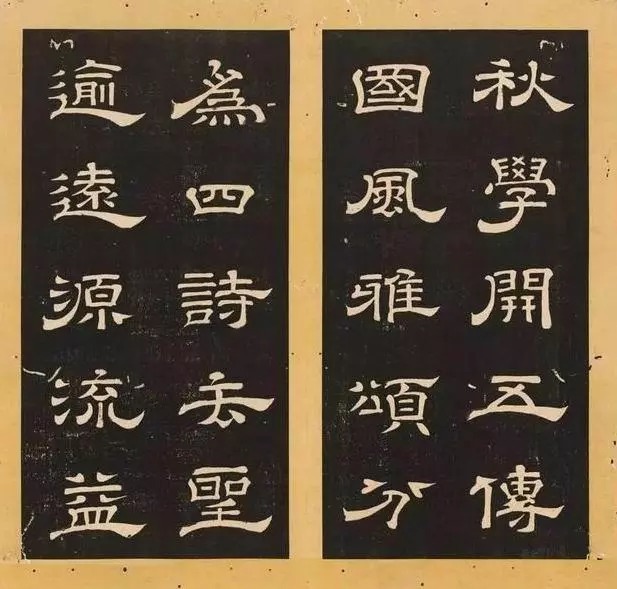 秋學開五傳
國風雅頌分
為四詩去聖
逾遠源流益